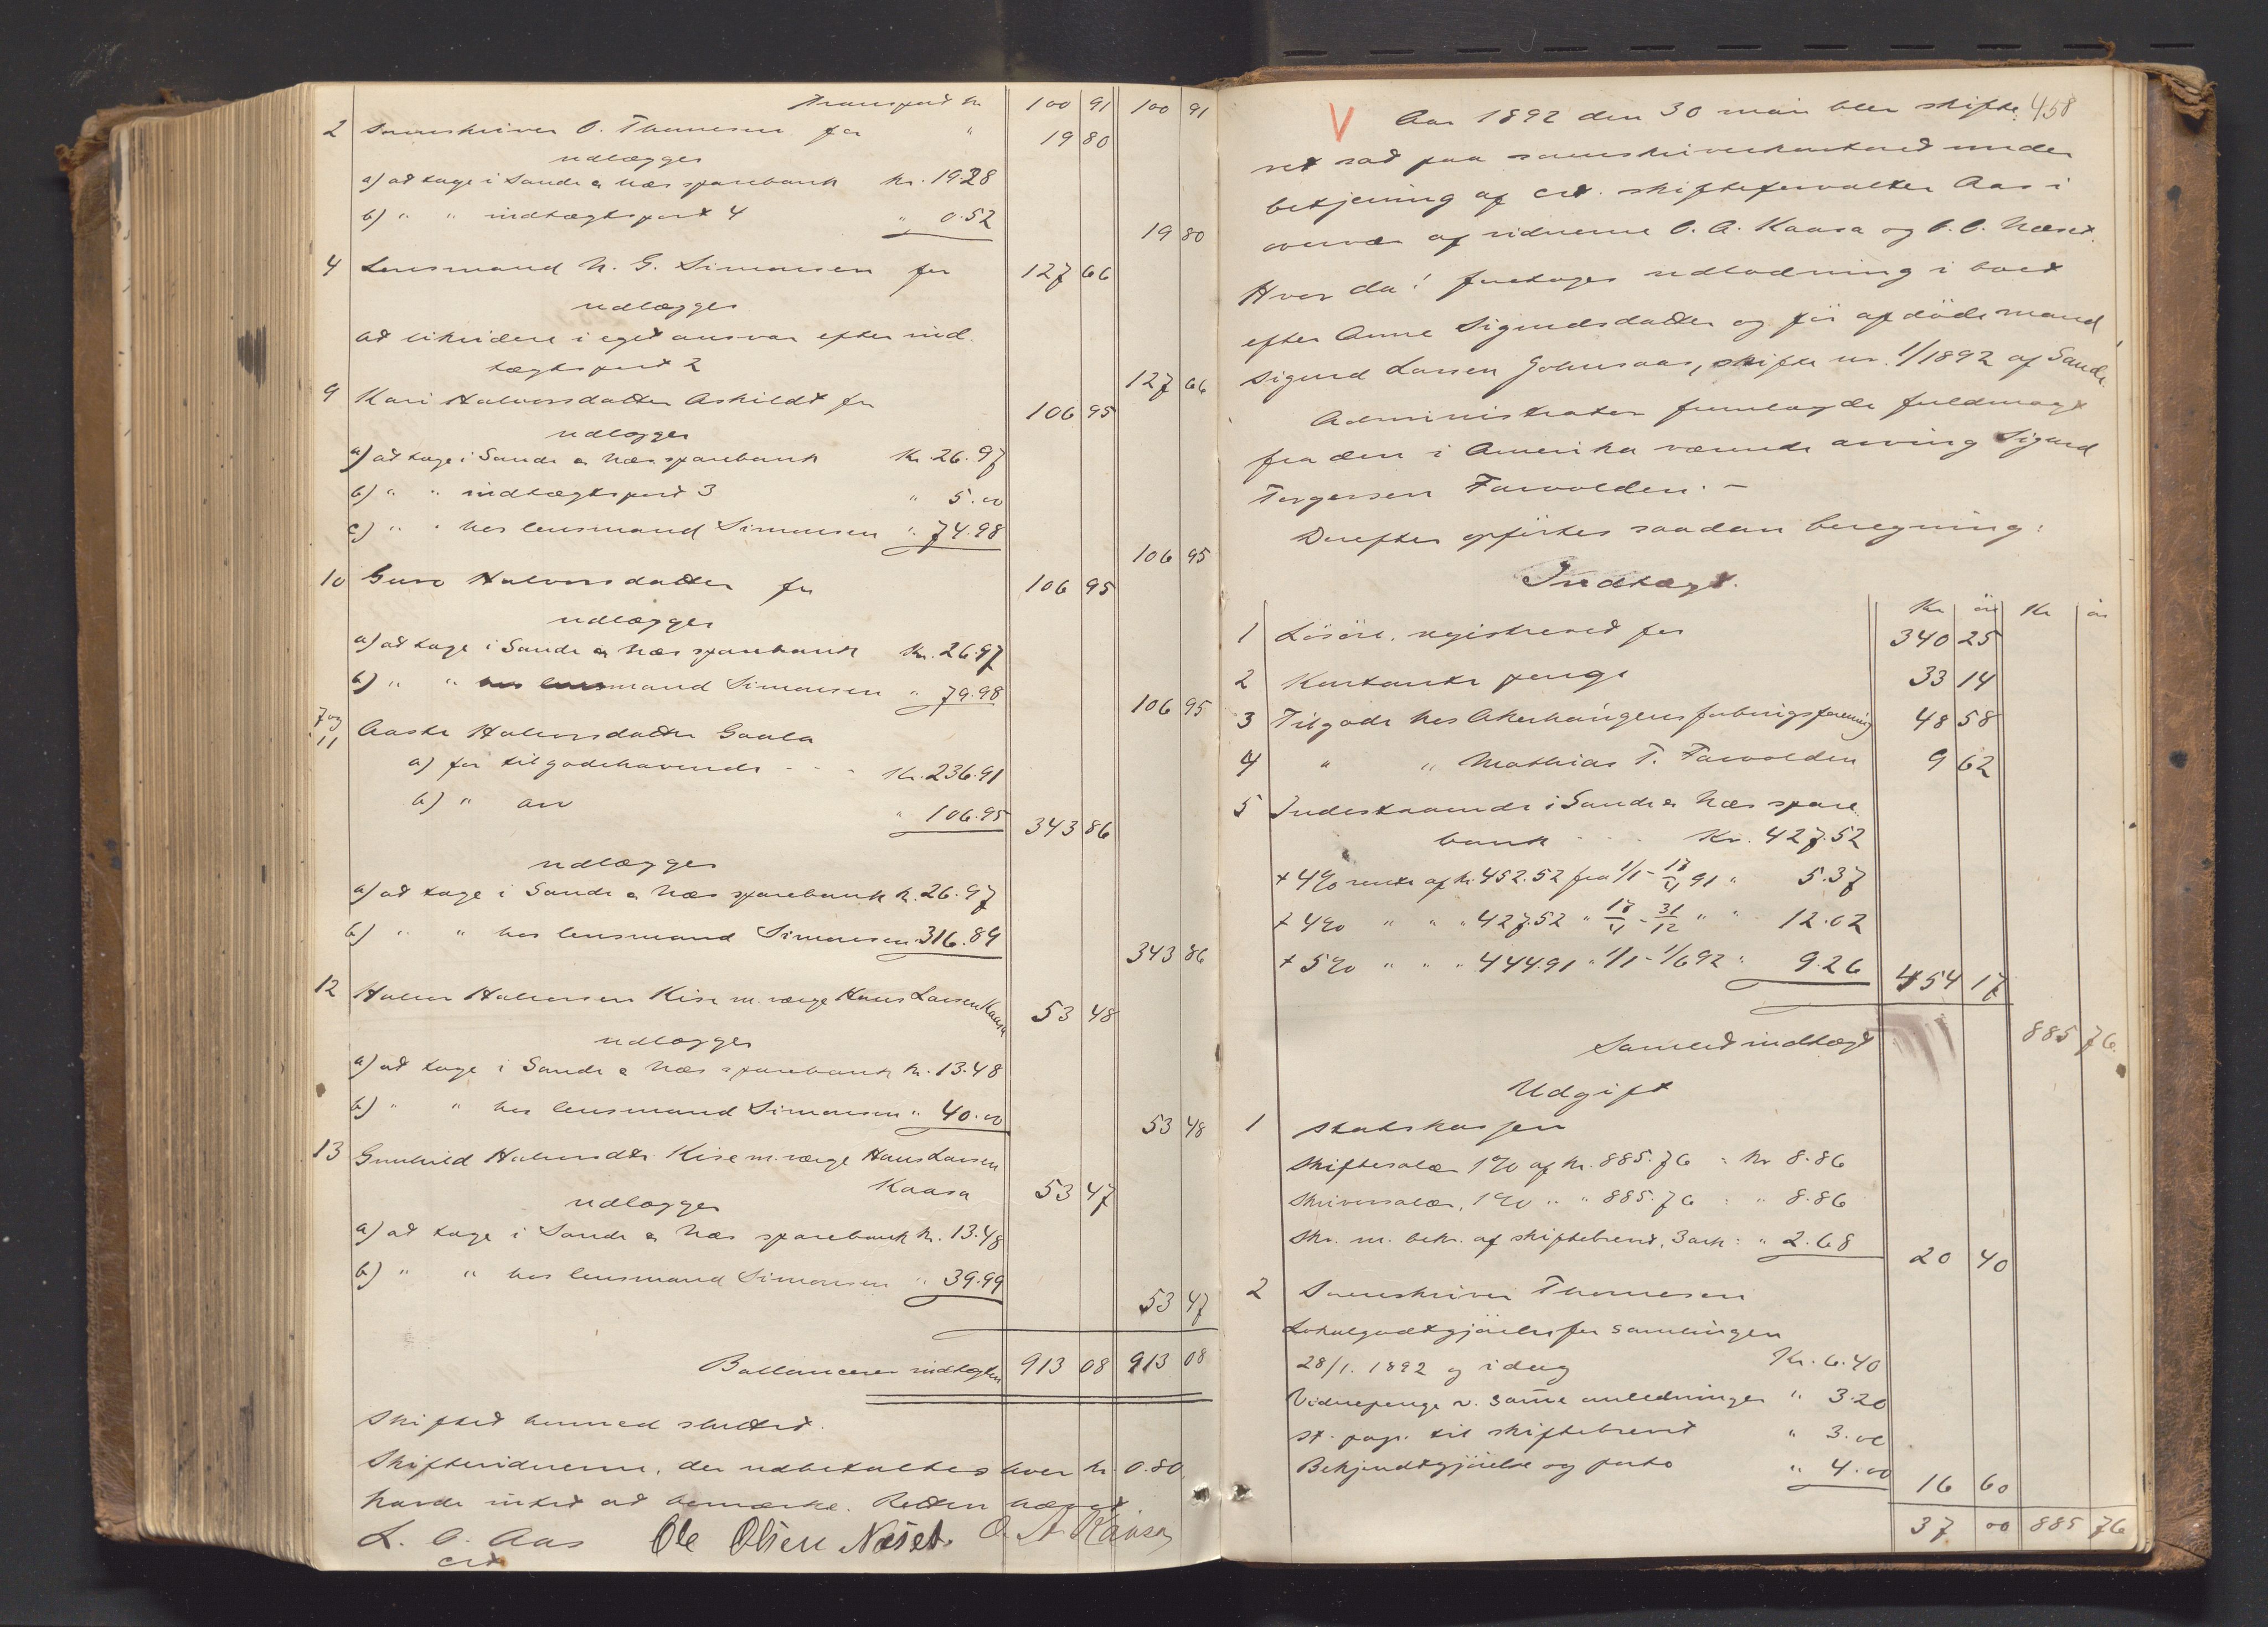 Transport kr. 100 91 100 91
2 Sorenskriver O. Thomesen for " 19 80
udlægges
a) at tage i Sande & Næs sparebank kr. 19.28
b) " " indtægtspost 4 " 0.52
19 80
4 Lensmand N. G. Simonsen for 127 66
udlægges
at likvidere i eget ansvar efter ind-
tægtspost 2
127 66
9 Kari Halvorsdatter Askildt for 106 95
udlægges
a) at tage i Sande & Næs sparebank Kr. 26.97
b) " " indtægtspost 3 " 5.00
c) " " hos lensmand Simonsen " 74.98
106 95
10 Guro Halvorsdatter for 106 95
udlægges
a) at tage i Sande & Næs sparebank Kr. 26.97
b) " " hos lensmand Simonsen " 79.98
106 95
7 og 11 Aaste Halvorsdatter Gaala
a) for tilgodehavende - - - Kr. 236.91
b) " arv " 106.95 343 86
udlægges
a) at tage i Sande & Næs sparebank k. 26.97
b) " " hos lensmand Simonsen 316.89
343 86
12 Halvor Halvorsen Kise m. værge Hans Larsen Kaasa 53 48
udlægges
a) at tage i Sande & Næs sparebank kr. 13.48
b) " " hos lensmand Simonsen " 40.00
53 48
13 Gunhild Halvorsdtr Kise m. værge Hans Larsen
Kaasa 53 47
udlægges
a) at tage i Sande & Næs sparebank kr. 13.48
b) " " hos lensmand Simonsen " 39.99
53 47
Ballancerer indtægten 913 08 913 08
Skiftet hermed sluttet.
Skiftevidnerne, der udbetaltes hver kr. 0.80,
havde intet at bemærke. Retten hævet.
L. O. Aas Ole Olsen Næset. O. A. Kaasa
cst.
V 458
Aar 1892 den 30 mai blev skifte-
ret sat paa sorenskriverkontoret under
betjening af cst. skifteforvalter Aas i
overvær af vidnerne O. A. Kaasa og O. O. Næset.
Hvor da: foretoges udlodning i boet
efter Anne Sigurdsdatter og før afdøde mand
Sigurd Larsen Johnsaas, skifte nr. 1/1892 af Sande.
Administrator fremlagde fuldmagt
fra den i Amerika værende arving Sigurd
Torgersen Farvolden. -
Derefter opførtes saadan beregning:
Indtægt.
Kr øre Kr øre
1 Løsøre, registreret for 340 25
2 Kontante penge 33 14
3 Tilgode hos Akerhaugens forbrugsforening 48 58
4 " " Mathias T. Farvolden 9 62
5 Indestaaende i Sande & Næs spare-
bank - - - Kr. 427.52
+ 4% rente af kr. 452.52 fra 1/1 - 18/4 91 " 5.37
+ 4% " " " 427.52 " 18/4 - 31/12 " " 12.02
+ 5% " " " 444.91 " 1/1 - 1/6 92 " 9.26 454 17
Samlet indtægt 885 76
Udgift
1 Statskassen
Skiftesalær 1% af kr. 885.76 = kr 8.86
Skriversalær, 1% " " 885.76 = " 8.86
Skr. m. bekr. af skiftebrevet, 3 ark = " 2.68 20 40
2 Sorenskriver Thomesen
Lokalgodtgjørelse for samlingen
28/1. 1892 og idag Kr. 6.40
Vidnepenge v. samme anledninger " 3.20
st. pap. til skiftebrevet " 3.00
Bekjendtgjørelse og porto " 4.00 16 60
37 00 885 76